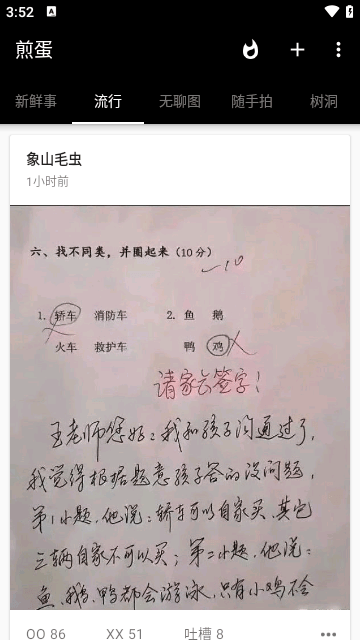 3:52
煎蛋
新鲜事 流行 无聊图 随手拍 树洞
象山毛虫
1小时前
六、找不同类，并圈起来（10分）
-10
1. 轿车 消防车 2. 鱼 鹅
火车 救护车 鸭 鸡
请家长签字！
王老师您好：我和孩子沟通过了，
我觉得根据题意孩子答的没问题，
第1小题，他说：轿车可以自家买，其它
三辆自家不可以买；第二小题，他说：
鱼、鹅、鸭都会游泳，只有小鸡不会
OO 86 XX 51 吐槽 8